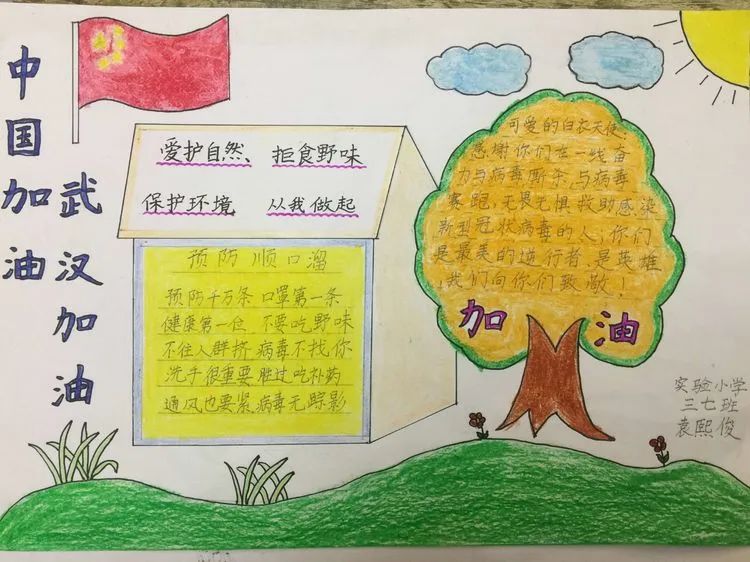 中国加油
武汉加油
爱护自然、拒食野味
保护环境 从我做起
预防顺口溜
预防千万条 口罩第一条
健康第一位 不要吃野味
不住人群挤 病毒不找你
洗手很重要 胜过吃补药
通风也要紧 病毒无踪影
可爱的白衣天使:
感谢你们在一线奋
力与病毒厮杀,与病毒
赛跑,无畏无惧救助感染
新型冠状病毒的人,你们
是最美的逆行者,是英雄
,我们向你们致敬!
加油
实验小学
三七班
袁熙俊